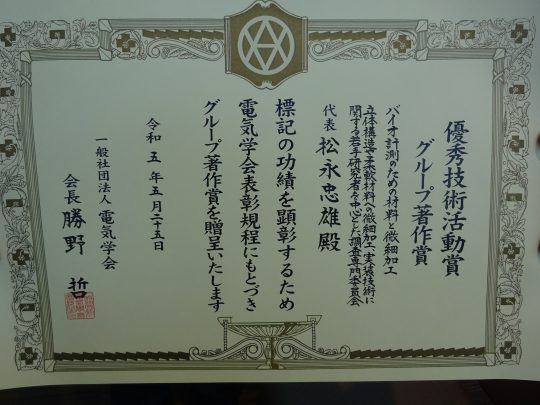 優秀技術活動賞
グループ著作賞
バイオ計測のための材料と微細加工
立体構造・柔軟材料への微細加工・実装技術に
関する若手研究者を中心とした調査専門委員会
代表 松永忠雄殿
標記の功績を顕彰するため
電気学会表彰規程にもとづき
グループ著作賞を贈呈いたします
令和五年五月二十五日
一般社団法人 電気学会
会長 勝野 哲